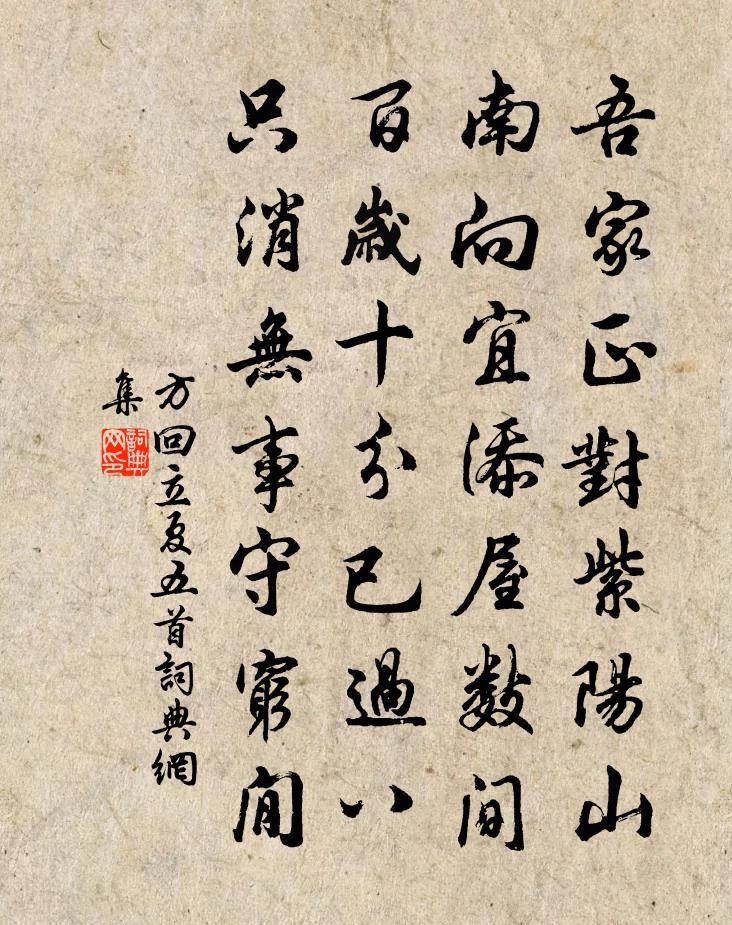 吾家正對紫陽山
南向宜添屋數間
百歲十分已過八
只消無事守窮閒
方回立夏五首詞典網
集
詞典網印